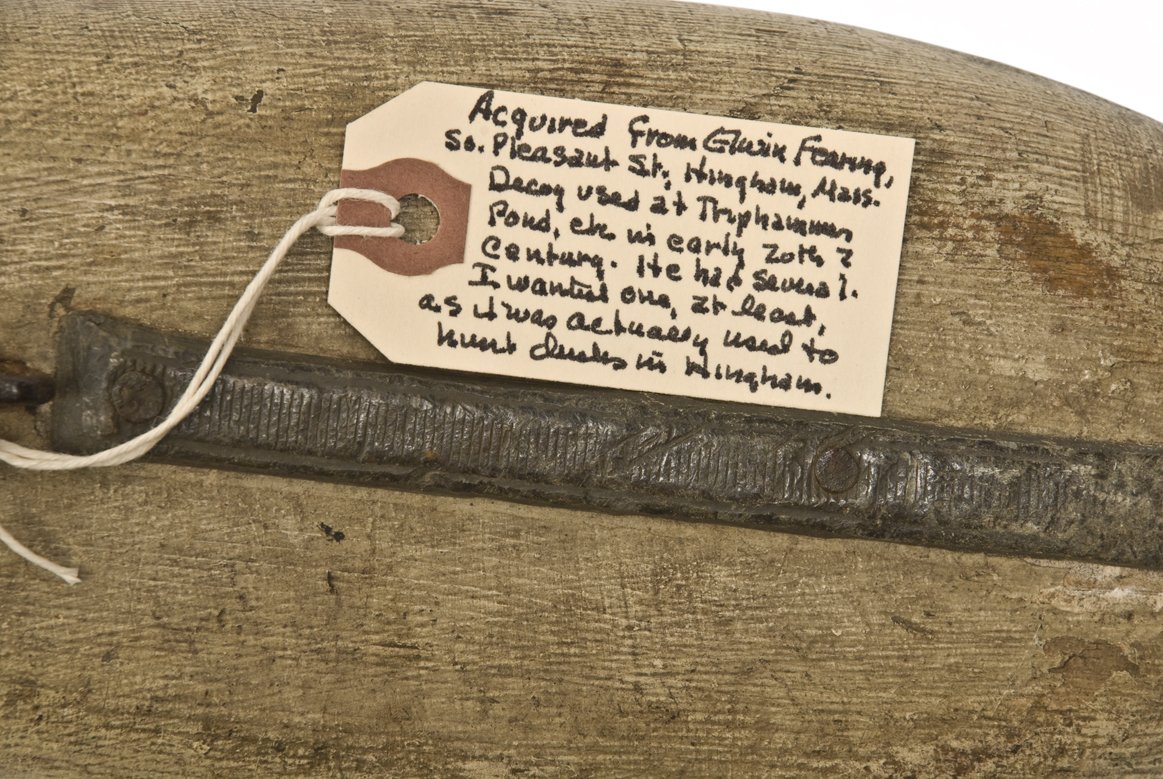 Acquired from Elwin Fearing,
So. Pleasant St., Hingham, Mass.
Decoy used at Triphammer
Pond, etc. in early 20th ?
Century. He had several.
I wanted one, at least,
as it was actually used to
hunt ducks in Hingham.